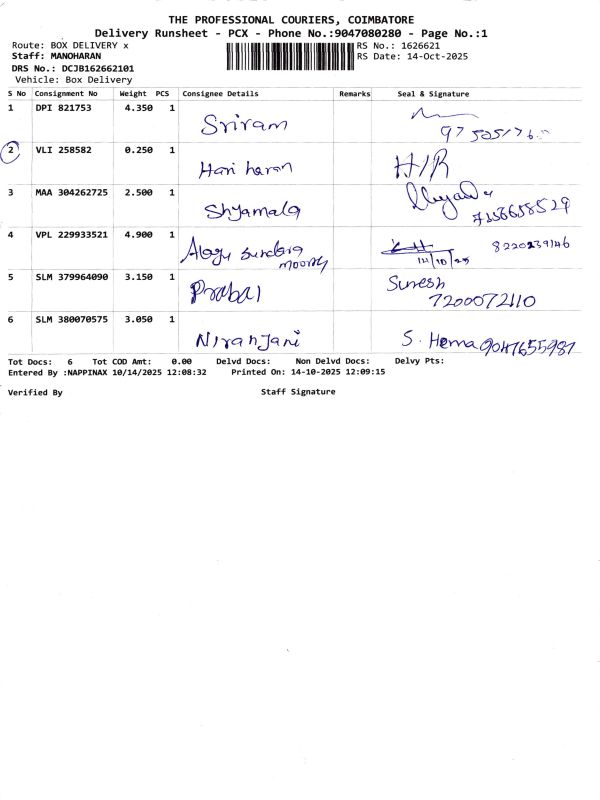 THE PROFESSIONAL COURIERS, COIMBATORE
Delivery Runsheet - PCX - Phone No.:9047080280 - Page No.:1
Route: BOX DELIVERY x
Staff: MANOHARAN
DRS No.: DCJB162662101
Vehicle: Box Delivery
RS No.: 1626621
RS Date: 14-Oct-2025
S No Consignment No Weight PCS Consignee Details Remarks Seal & Signature
1 DPI 821753 4.350 1 Sriram
2 VLI 258582 0.250 1 Hari haran H/R
3 MAA 304262725 2.500 1 Shyamala
4 VPL 229933521 4.900 1 Alagu Sundara
moorthy
14/10/25 8220239146
5 SLM 379964090 3.150 1 Prabal Suresh
7200072110
6 SLM 380070575 3.050 1 Niranjani S. Hema 9047655987
Tot Docs: 6 Tot COD Amt: 0.00 Delvd Docs: Non Delvd Docs: Delvy Pts:
Entered By :NAPPINAX 10/14/2025 12:08:32 Printed On: 14-10-2025 12:09:15
Verified By Staff Signature